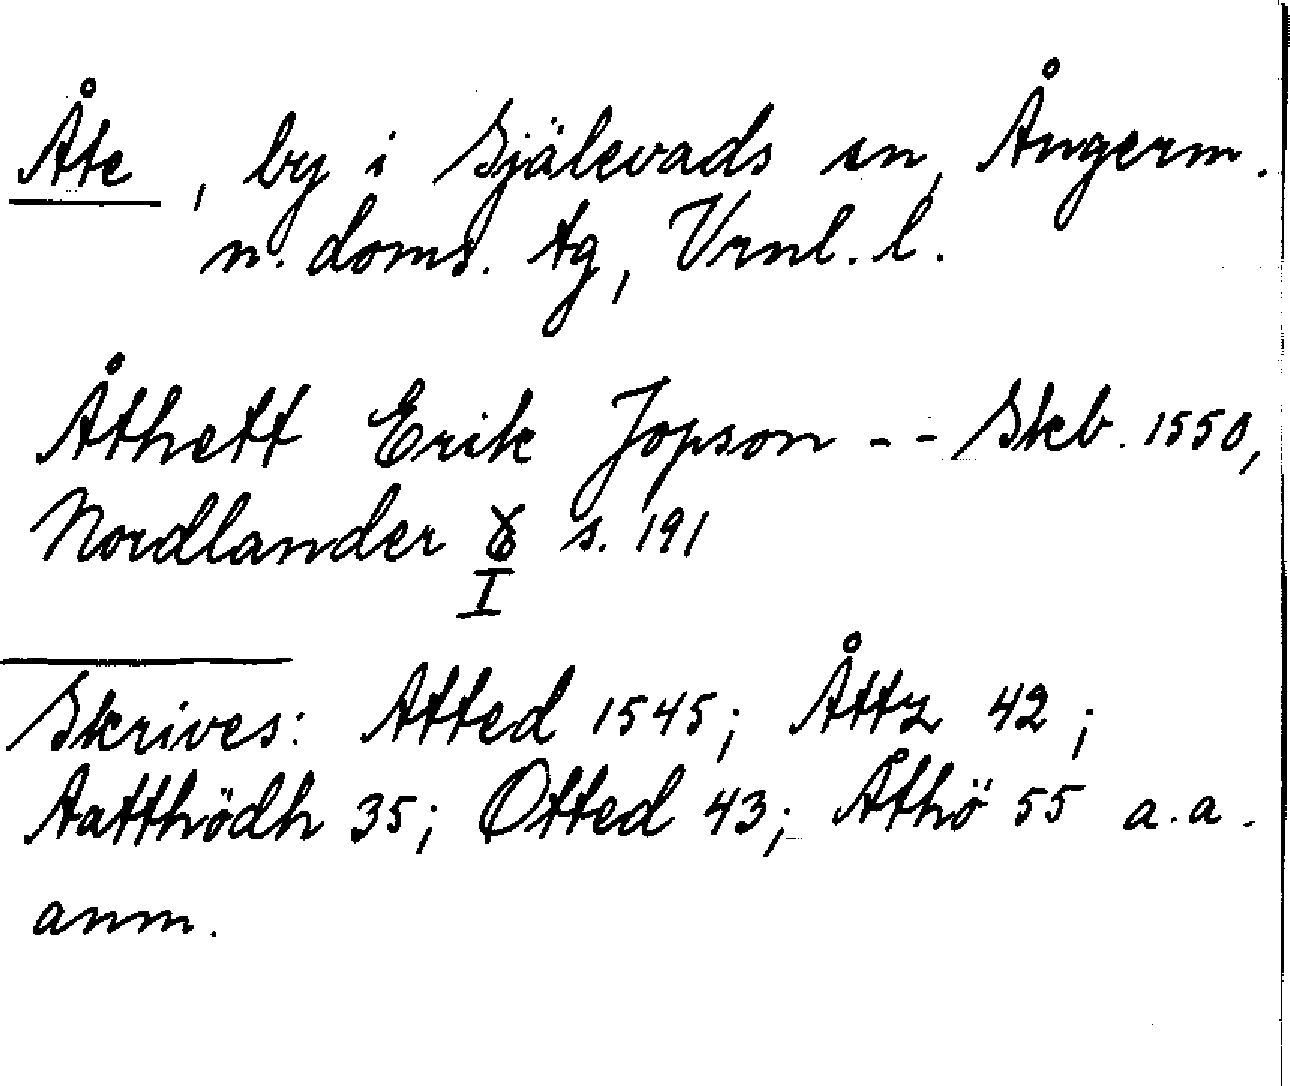 Åte, by i Själevads sn, Ångerm.
n. doms. tg, Vrnl. l.
Åthett Erik Jopson - - Skb. 1550,
Nordlander s. 191
I
Skrives: Atted 1545; Åttz 42;
Aatthödh 35; Otted 43; Åthö 55 a.a.
anm.